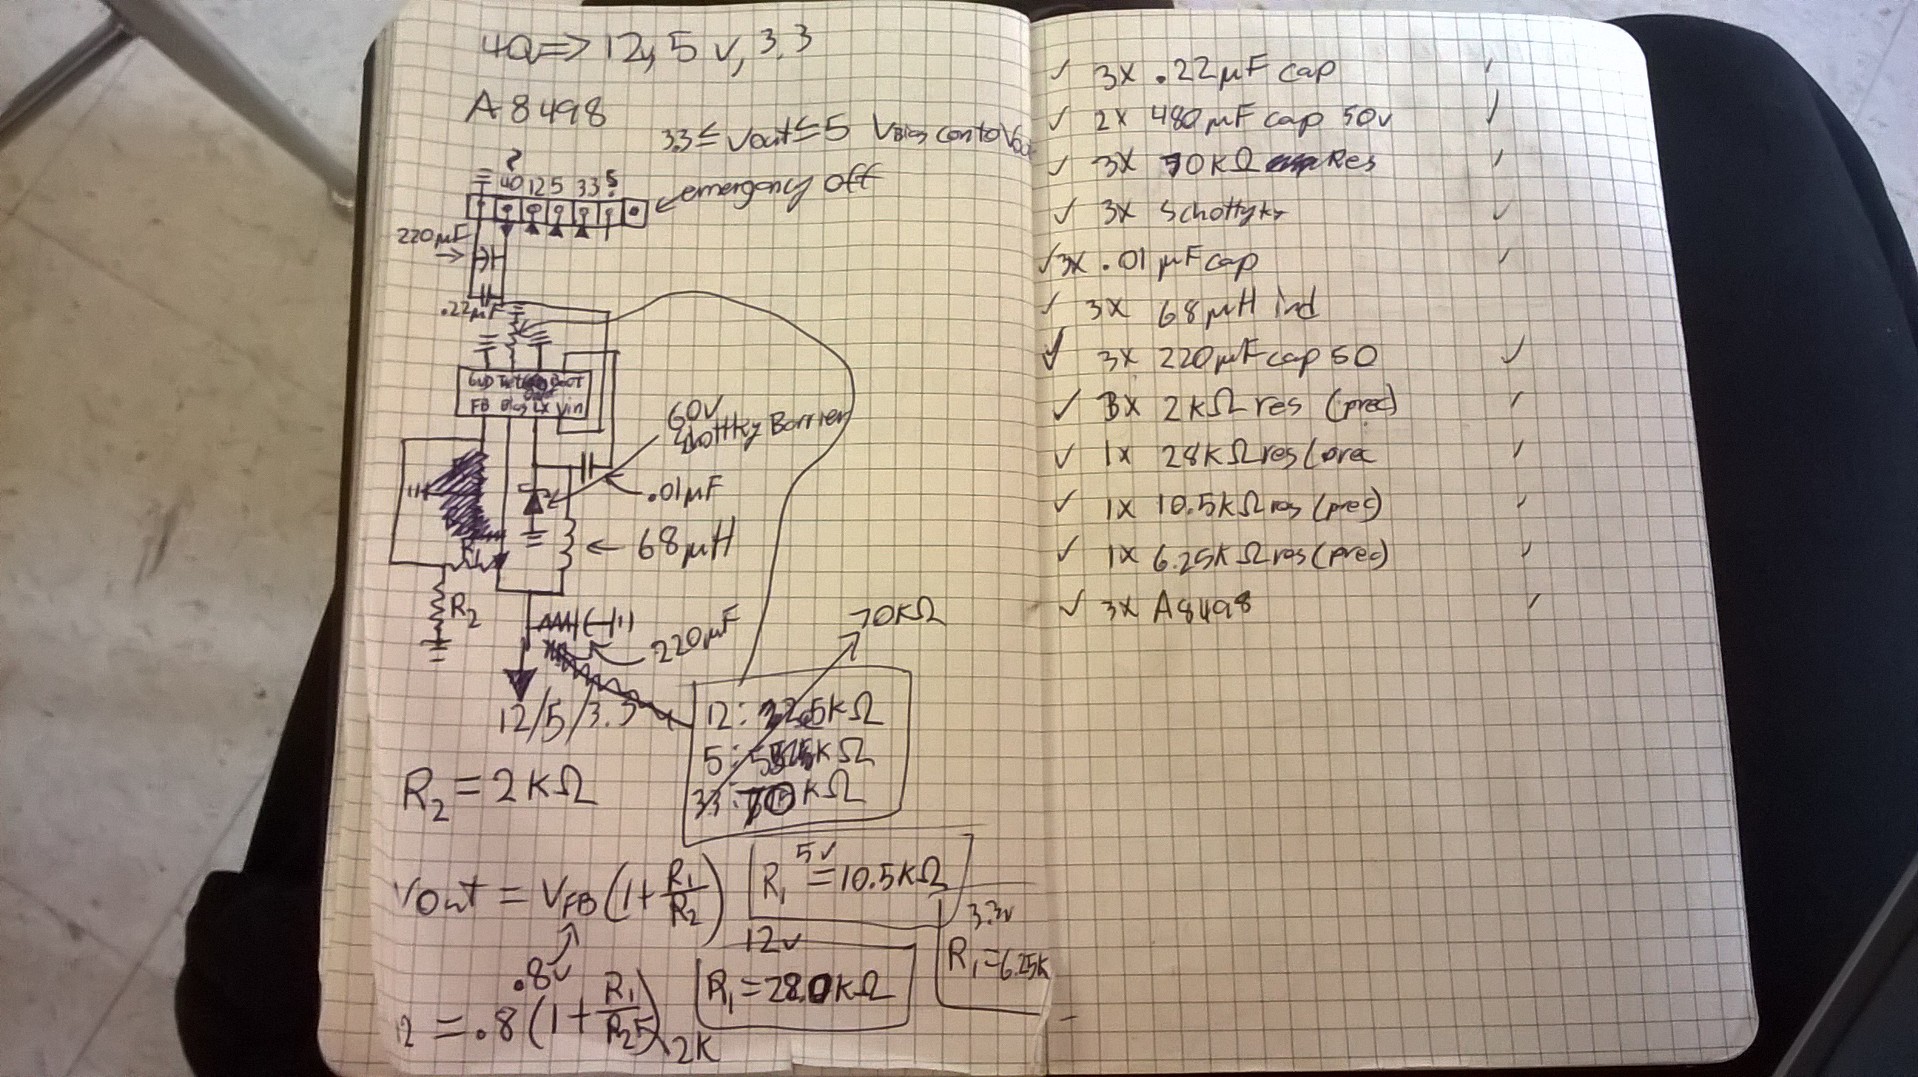 40 => 12, 5 v, 3.3
A8498
3.3 ≤ Vout ≤ 5 VBias con to
?
40 12 5 33 5
emergency off
220 µF
.22 µF
GND Tset Boot
FB Bias LX Vin
60v
Schottky Barrier
.01 µF
68 µH
R1
R2
220 µF
70KΩ
12/5/3.3
12: kΩ
5: kΩ
33: 70 kΩ
R2 = 2KΩ
5v
R1 = 10.5KΩ
Vout = VFB (1 + R1/R2)
3.3v
R1 = 6.25K
12v
R1 = 28.0KΩ
.8v
12 = .8 (1 + R1/R2) 2K
✓ 3x .22 µF cap
✓ 2x 480 µF cap 50v
✓ 3x 70KΩ Res
✓ 3x Schottyky ✓
✓ 3x .01 µF cap
✓ 3x 68 µH ind
✓ 3x 220 µF cap 50 ✓
✓ 3x 2KΩ res (prec)
✓ 1x 28KΩ res (prec
✓ 1x 10.5KΩ res (prec)
✓ 1x 6.25KΩ res (prec)
✓ 3x A8498